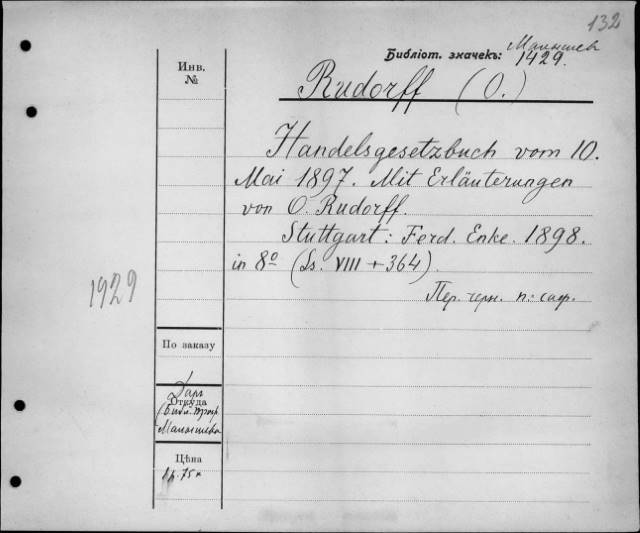 132
Библіот. значекъ: Малышев
1429.
Инв.
№
Rudorff (O.)
Handelsgesetzbuch vom 10.
Mai 1897. Mit Erläuterungen
von O. Rudorff.
Stuttgart: Ferd. Enke. 1898.
in 8º (Ss. VIII + 364).
Пер. черн. п: саф.
1929
По заказу
Даръ
Откуда
(Библ. проф
Малышева
Цѣна
1р. 75к